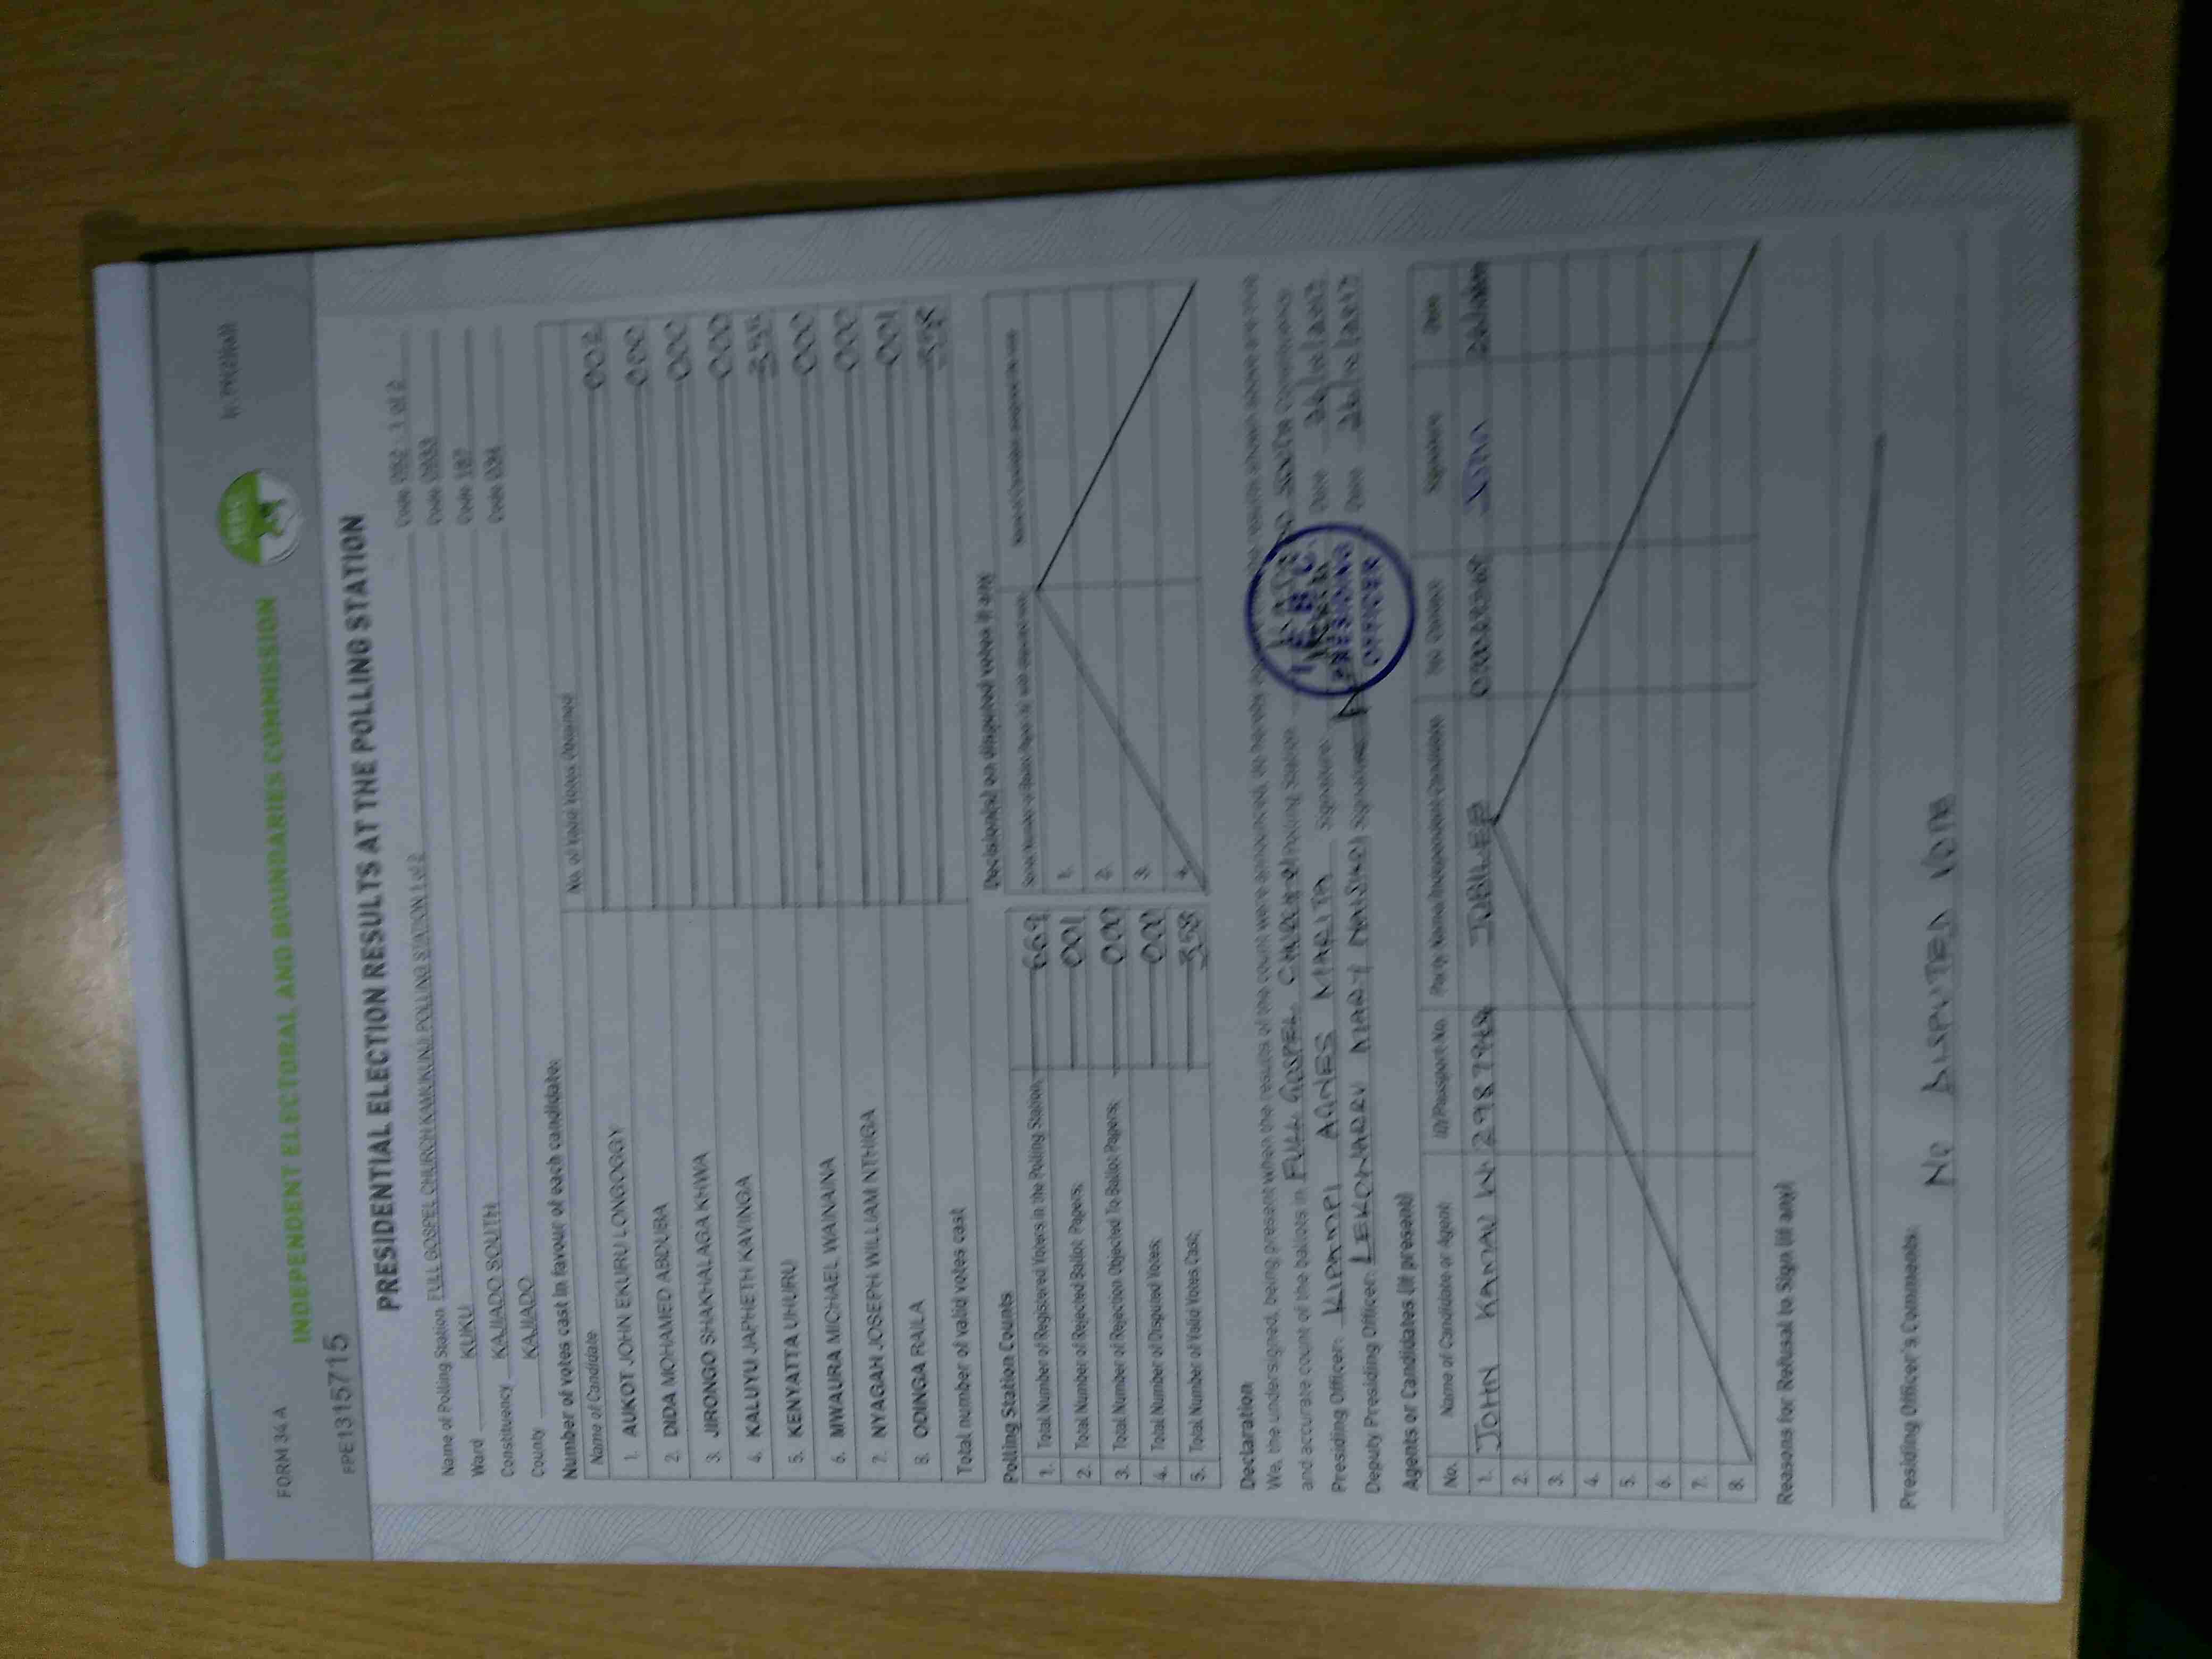 FORM 34 A
INDEPENDENT ELECTORAL AND BOUNDARIES COMMISSION
FPE1315715
PRESIDENTIAL ELECTION RESULTS AT THE POLLING STATION
Name of Polling Station FULL GOSPEL CHURCH KAMUKUNJI POLLING STATION 1 of 2 Code 052 - 1 of 2
Ward KUKU Code 0933
Constituency KAJIADO SOUTH Code 187
County KAJIADO Code 034
Number of votes cast in favour of each candidate:
Name of Candidate No. of Valid Votes Obtained
1. AUKOT JOHN EKURU LONGOGGY 002
2. DIDA MOHAMED ABDUBA 000
3. JIRONGO SHAKHALAGA KHWA 000
4. KALUYU JAPHETH KAVINGA 000
5. KENYATTA UHURU
6. MWAURA MICHAEL WAINAINA 000
7. NYAGAH JOSEPH WILLIAM NTHIGA 000
8. ODINGA RAILA 001
Total number of valid votes cast 358
Polling Station Counts
1. Total Number of Registered Voters in the Polling Station; 669
2. Total Number of Rejected Ballot Papers; 001
3. Total Number of Rejection Objected To Ballot Papers; 000
4. Total Number of Disputed Votes; 000
5. Total Number of Valid Votes Cast; 358
Decision(s) on disputed votes if any
1.
2.
3.
4.
Declaration
We, the undersigned, being present when the results of the count were announced, do hereby
and accurate count of the ballots in FULL GOSPEL CHURCH polling station SOUTH constituency
Presiding Officer: KIPAMPI AGNES MARITA Signature: Date
Deputy Presiding Officer: LEKONARU MARY NAISIAE Signature Date
I.E.B.C.
PRESIDING
OFFICER
Agents or Candidates (if present)
No. Name of Candidate or Agent ID/Passport No. Party Name/Independent Candidate Tel. Contact Signature Date
1. JOHN KAMAU W JUBILEE
2.
3.
4.
5.
6.
7.
8.
Reasons for Refusal to Sign (if any)
Presiding Officer's Comments:
NO DISPUTED VOTE